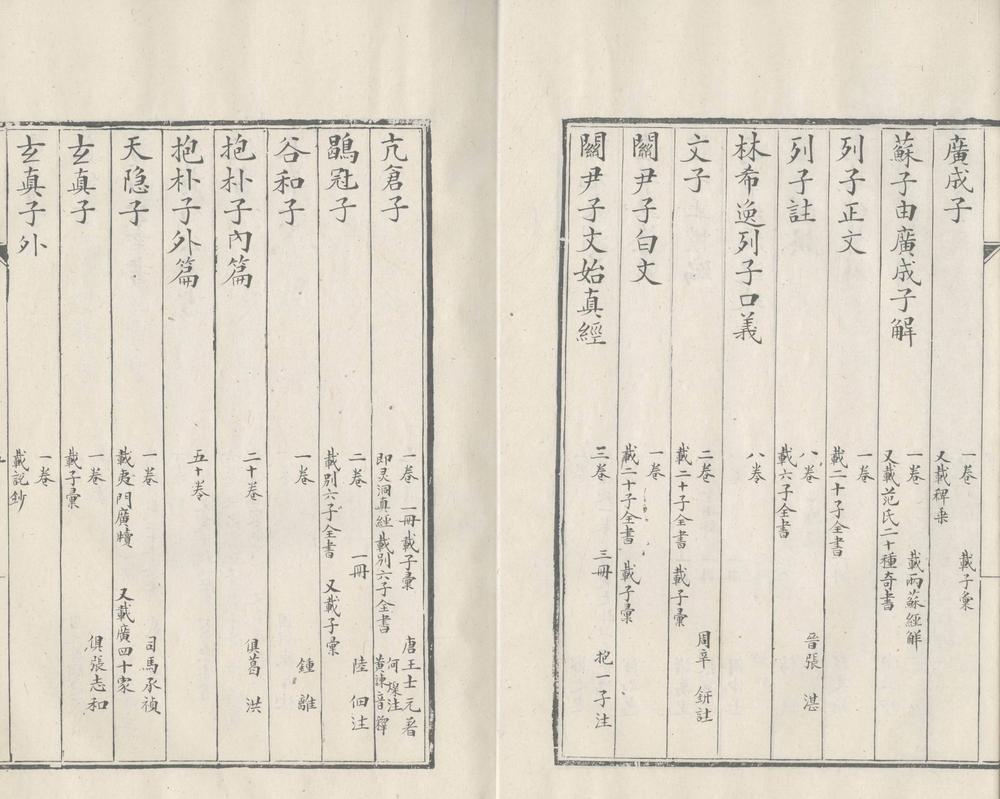 廣成子 一卷 載子彙
又載稗乗
蘇子由廣成子解 一卷 載兩蘇經解
又載范氏二十種奇書
列子正文 一卷
載二十子全書
列子註 八卷 晉張 湛
載六子全書
林希逸列子口義 八卷
文子 二卷 周辛 鈃註
載二十子全書 載子彙
關尹子白文 一卷
載二十子全書 載子彙
關尹子文始真經 三卷 三冊 抱一子注
亢倉子 一卷 一冊 載子彙 唐王士元著
即灵洞真經 載別六子全書 何燦注
黄諫音釋
鶡冠子 二卷 一冊 陸 佃注
載別六子全書 又載子彙
谷和子 一卷 鍾 離
抱朴子內篇 二十卷 俱葛 洪
抱朴子外篇 五十卷
天隐子 一卷 司馬承禎
載夷門廣牘 又載廣四十家
玄真子 一卷 俱張志和
載子彙
玄真子外 一卷
載說鈔